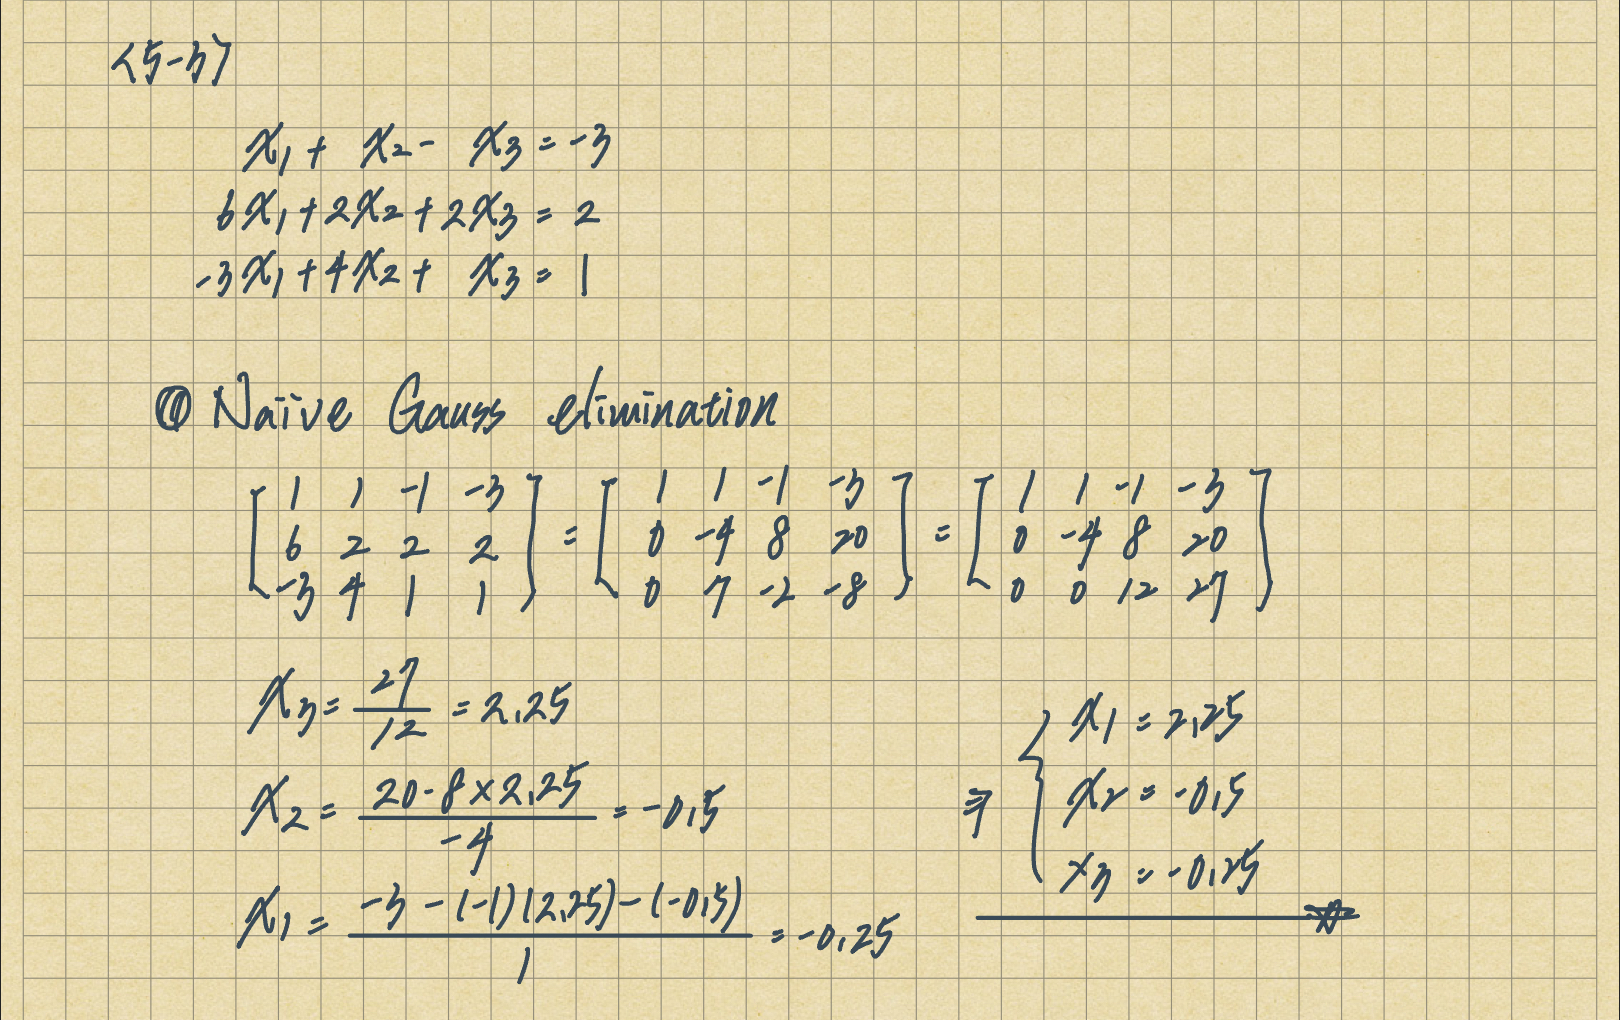 <5-3>
x₁ + x₂ - x₃ = -3
6x₁ + 2x₂ + 2x₃ = 2
-3x₁ + 4x₂ + x₃ = 1
Naïve Gauss elimination
[1 1 -1 -3] = [1 1 -1 -3] = [1 1 -1 -3]
[6 2 2 2] = [0 -4 8 20] = [0 -4 8 20]
[-3 4 1 1] = [0 7 -2 -8] = [0 0 12 27]
x₃ = 27/12 = 2.25
x₂ = (20-8×2.25)/-4 = -0.5
x₁ = (-3-(-1)(2.25)-(-0.5))/1 = -0.25
⇒ { x₁ = 2.25
x₂ = -0.5
x₃ = -0.25